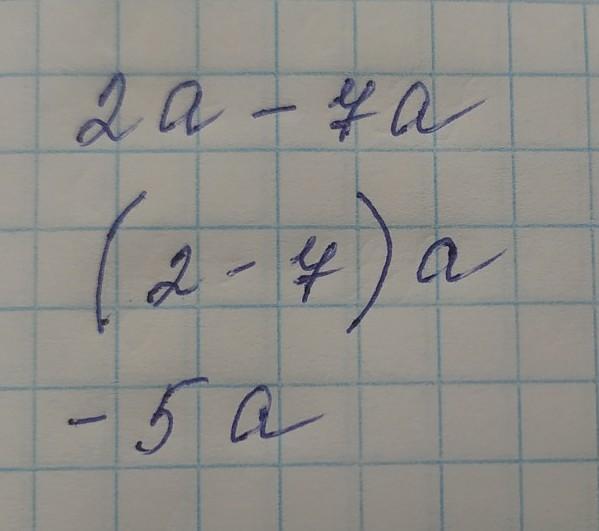 2a - 7a
(2 - 7)a
-5a